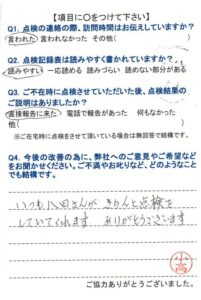 【項目に○をつけて下さい】
Q1. 点検の連絡の際、訪問時間はお伝えしていますか?
言われた 言われなかった その他( )
Q2. 点検記録表は読みやすく書かれていますか?
読みやすい 一応読める 読みづらい 読めない部分がある
Q3. ご不在時に点検させていただいた後、点検結果の
ご説明はありましたか?
直接報告に来た 電話で報告があった 何もなかった
他( )
※ご在宅時に点検をさせて頂いている場合は無回答で結構です。
Q4. 今後の改善の為に、弊社へのご意見やご希望など
をお聞かせください。ご不満やお叱りなど、どのようなこ
とでも結構です。
いつも八田さんが、きちんと点検を
していてくれます ありがとうございます
小高
ご協力ありがとうございました。